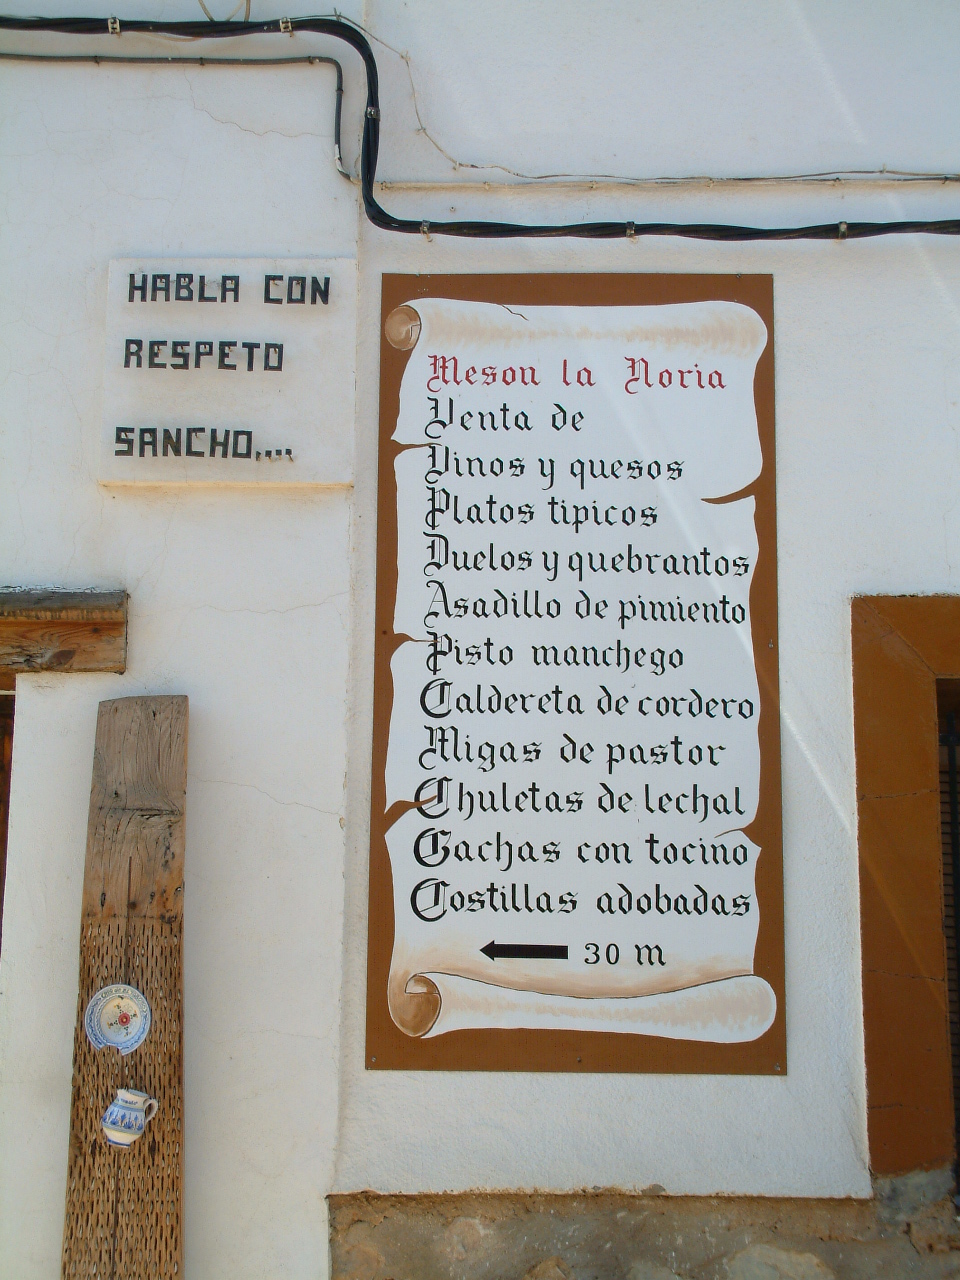 HABLA CON
RESPETO
SANCHO,...
Meson la Noria
Venta de
Vinos y quesos
Platos tipicos
Duelos y quebrantos
Asadillo de pimiento
Pisto manchego
Caldereta de cordero
Migas de pastor
Chuletas de lechal
Gachas con tocino
Costillas adobadas
30 m